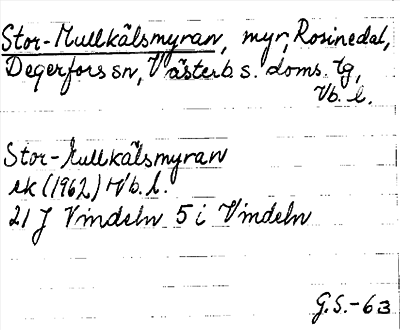 Stor-Mullkälsmyran, myr, Rosinedal,
Degerfors sn, Västerb s. doms. tg,
Vb. l.
Stor-Mullkälsmyran
ek (1962) Vb. l.
21 J Vindeln 5 i Vindeln
G.S.-63